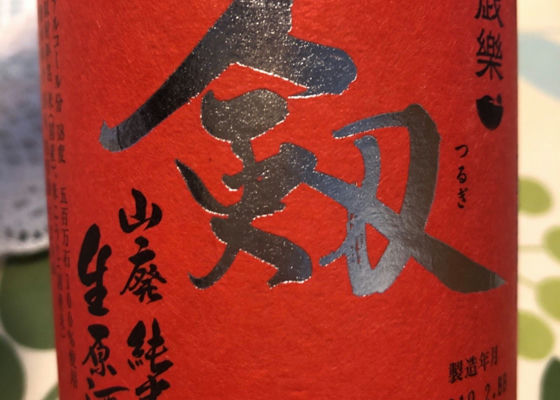 歳樂
つるぎ
剱
山廃 純米
生原酒
アルコール分 18度 五百万石100%使用
製造年月